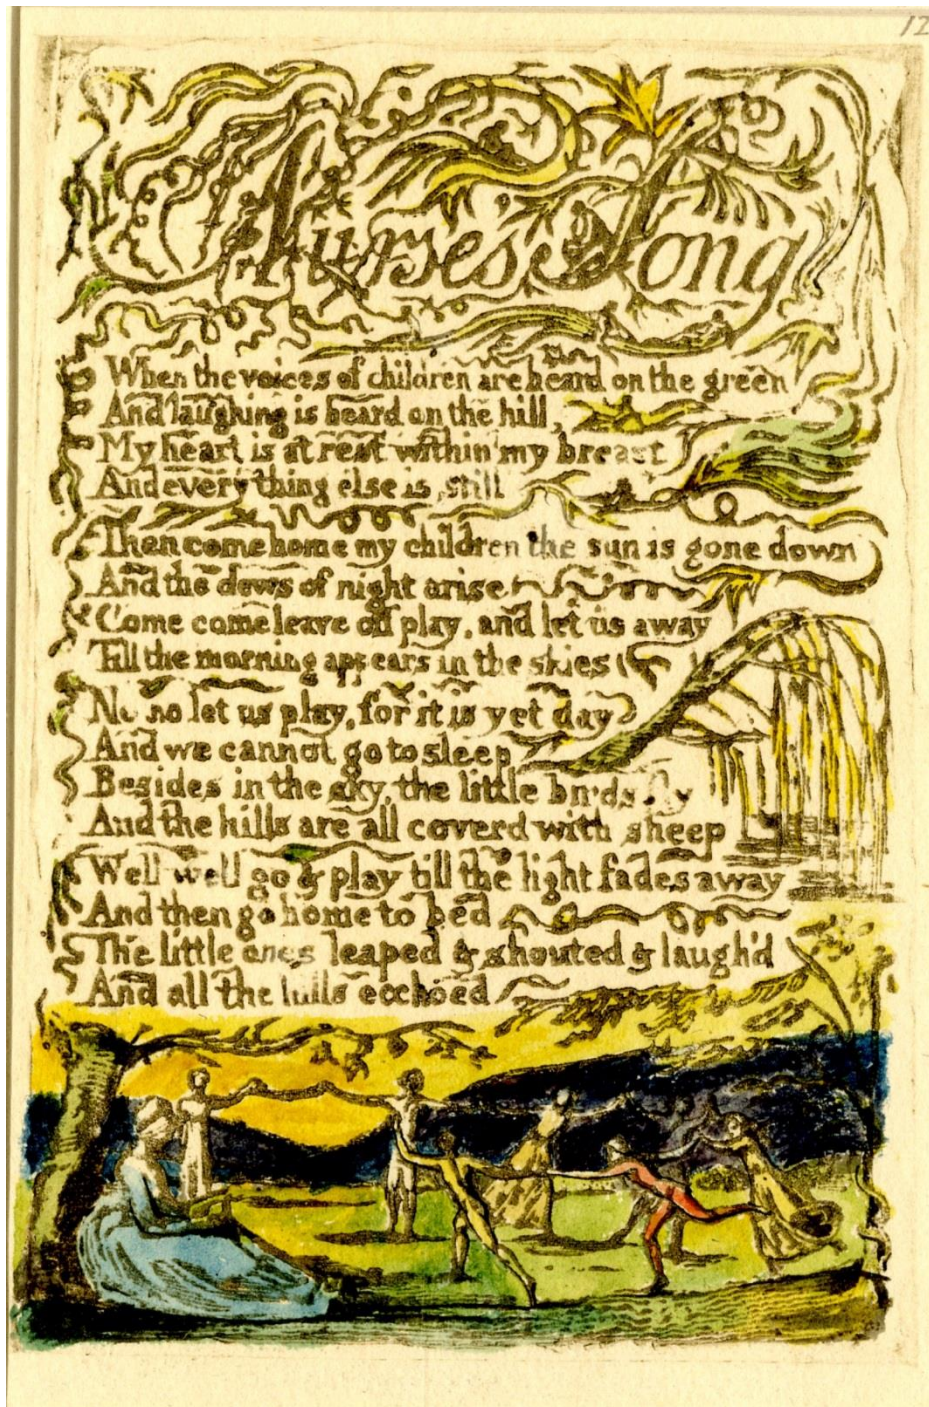 12
Nurse's Song
When the voices of children are heard on the green
And laughing is heard on the hill,
My heart is at rest within my breast
And every thing else is still
Then come home my children the sun is gone down
And the dews of night arise
Come come leave off play, and let us away
Till the morning appears in the skies
No no let us play, for it is yet day
And we cannot go to sleep
Besides in the sky, the little birds fly
And the hills are all coverd with sheep
Well well go & play till the light fades away
And then go home to bed
The little ones leaped & shouted & laugh'd
And all the hills ecchoed